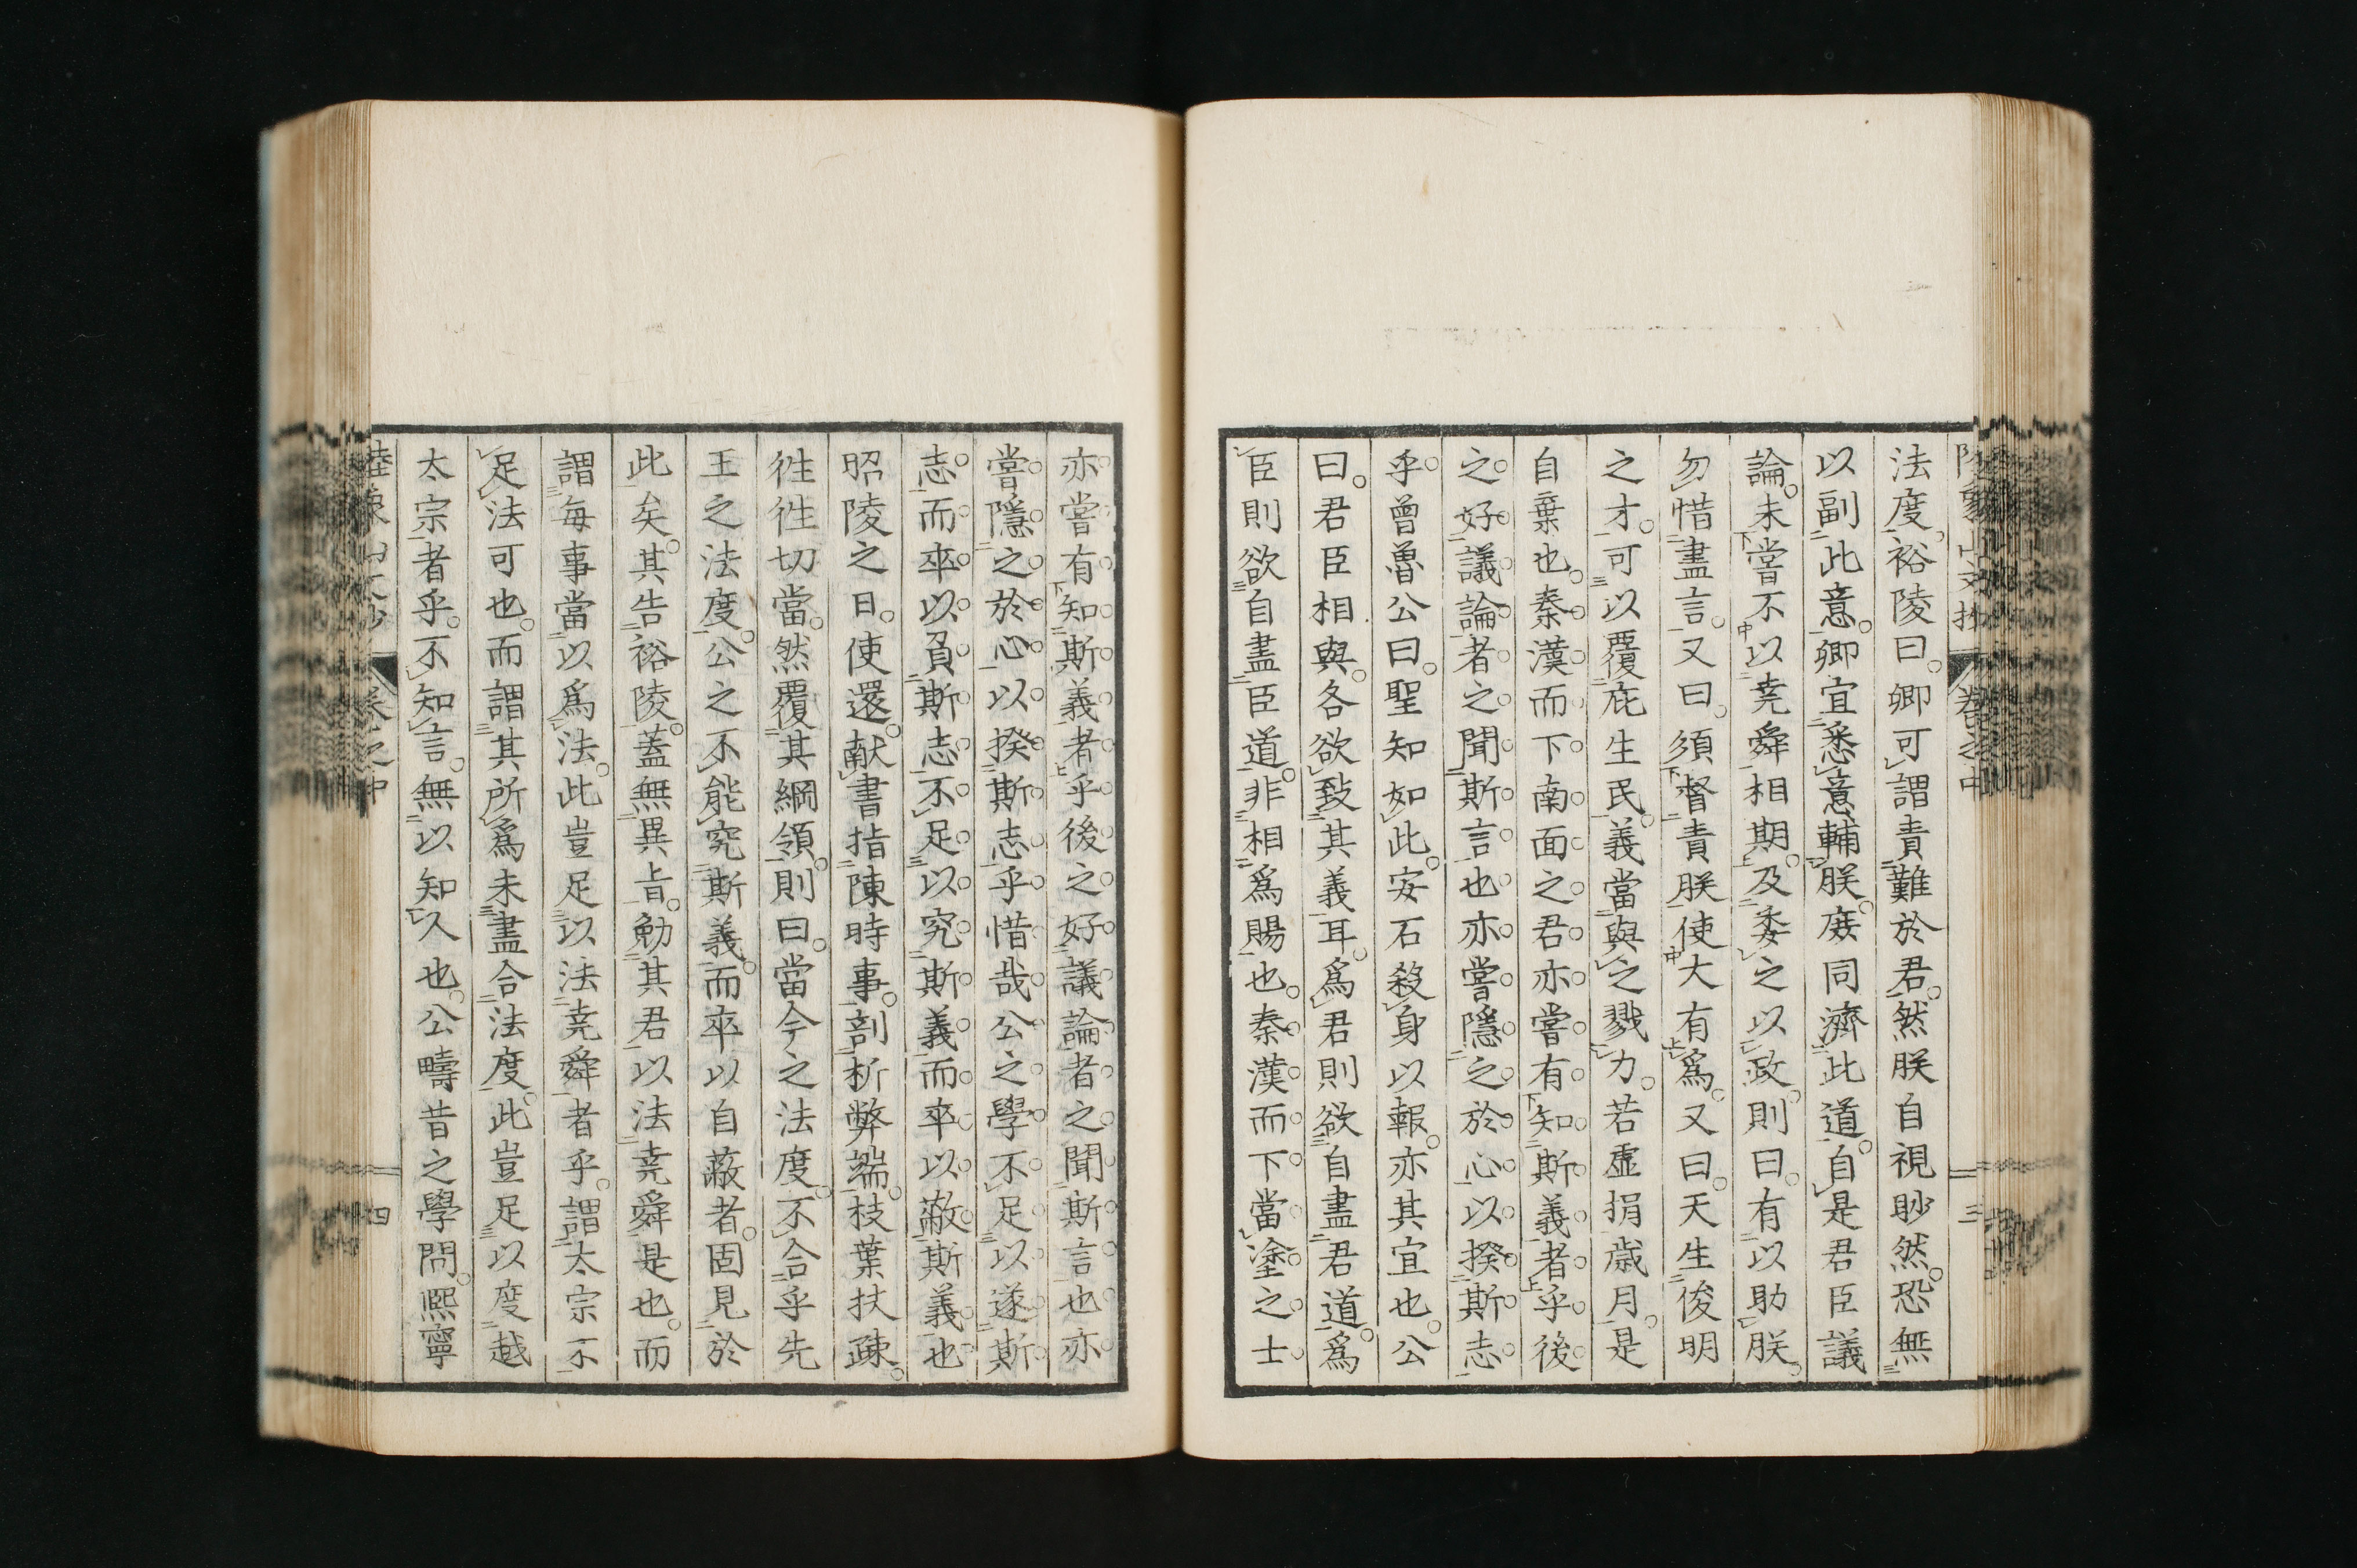 法度。裕陵曰。卿可謂責難於君。然朕自視眇然。恐無
以副此意。卿宜悉意輔朕。庶同濟此道。自是君臣議
論。未嘗不以堯舜相期。及委之以政。則曰。有以助朕。
勿惜盡言。又曰。須督責朕使大有爲。又曰。天生俊明
之才。可以覆庇生民。義當與之戮力。若虛捐歲月。是
自棄也。秦漢而下南面之君亦嘗有知斯義者乎後
之好議論者之聞斯言也亦嘗隱之於心以揆斯志
乎曾魯公曰。聖知如此。安石殺身以報。亦其宜也。公
曰。君臣相與。各欲致其義耳。爲君則欲自盡君道。爲
臣則欲自盡臣道。非相爲賜也。秦漢而下當塗之士
亦嘗有知斯義者乎後之好議論者之聞斯言也亦
嘗隱之於心以揆斯志乎惜哉公之學不足以遂斯
志而卒以負斯志不足以究斯義而卒以蔽斯義也
昭陵之日。使還。献書指陳時事。剖析弊端。枝葉扶疎。
徃徃切當。然覆其綱領。則曰。當今之法度。不合乎先
王之法度。公之不能究斯義。而卒以自蔽者。固見於
此矣。其告裕陵。蓋無異旨。勉其君以法堯舜是也。而
謂每事當以爲法。此豈足以法堯舜者乎。謂太宗不
足法可也。而謂其所爲未盡合法度。此豈足以度越
太宗者乎。不知言。無以知人也。公疇昔之學問。熙寧
卷之中
四